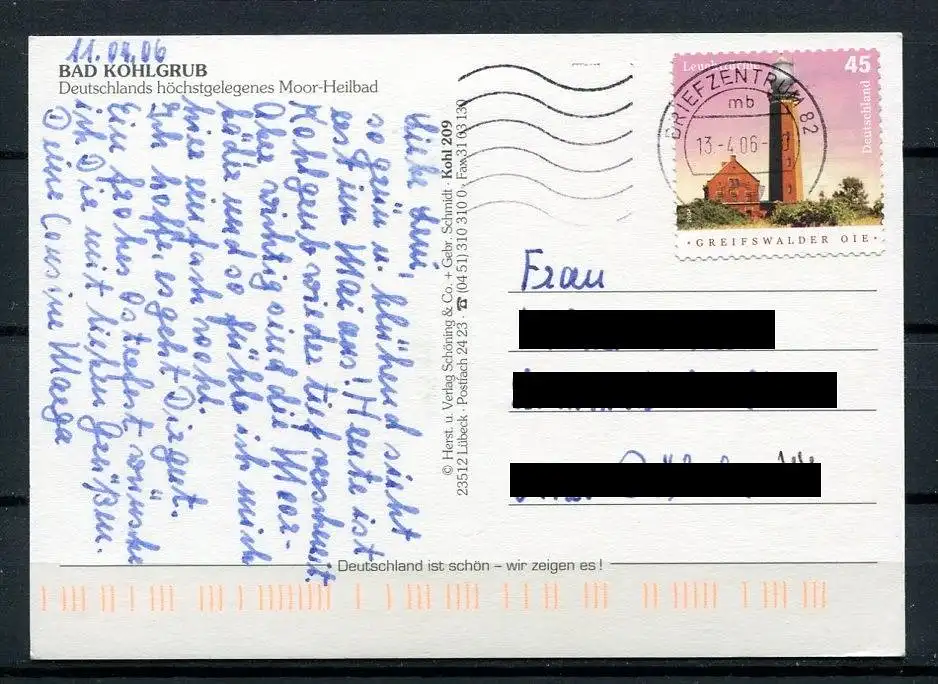 11.04.06
BAD KOHLGRUB
Deutschlands höchstgelegenes Moor-Heilbad
Liebe
so grün u. blühend sieht
es im Mai aus! Heute ist
Kohlgrub wieder tief verschneit.
Aber wichtig sind die Moor-
bäder und so fühle ich mich
hier einfach wohl.
Ich hoffe, es geht Dir gut.
Ein frohes Osterfest wünsche
ich Dir mit lieben Grüßen.
Deine Cousine
© Herst. u. Verlag Schöning & Co. + Gebr. Schmidt · Kohl 209
23512 Lübeck · Postfach 24 23 · ☎ (04 51) 310 310 0 · Fax 31 03 130
BRIEFZENTRUM 82
mb
13.-4.06
Leuchttürme
45
Deutschland
· GREIFSWALDER OIE ·
Frau
Deutschland ist schön – wir zeigen es !